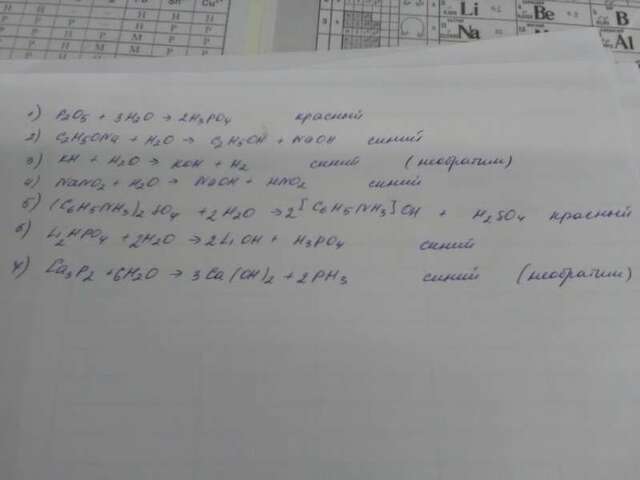 Li
Be
B
Na
Al
Н Н Н Р
Р Н М Р
М Р Р
1) P2O5 + 3H2O → 2H3PO4 красный
2) C2H5ONa + H2O → C2H5OH + NaOH синий
3) KH + H2O → KOH + H2 синий (необратим)
4) NaNO2 + H2O → NaOH + HNO2 синий
5) (C6H5NH3)2SO4 + 2H2O → 2[C6H5NH3]OH + H2SO4 красный
6) Li2HPO4 + 2H2O → 2LiOH + H3PO4 синий
7) Ca3P2 + 6H2O → 3Ca(OH)2 + 2PH3 синий (необратим)